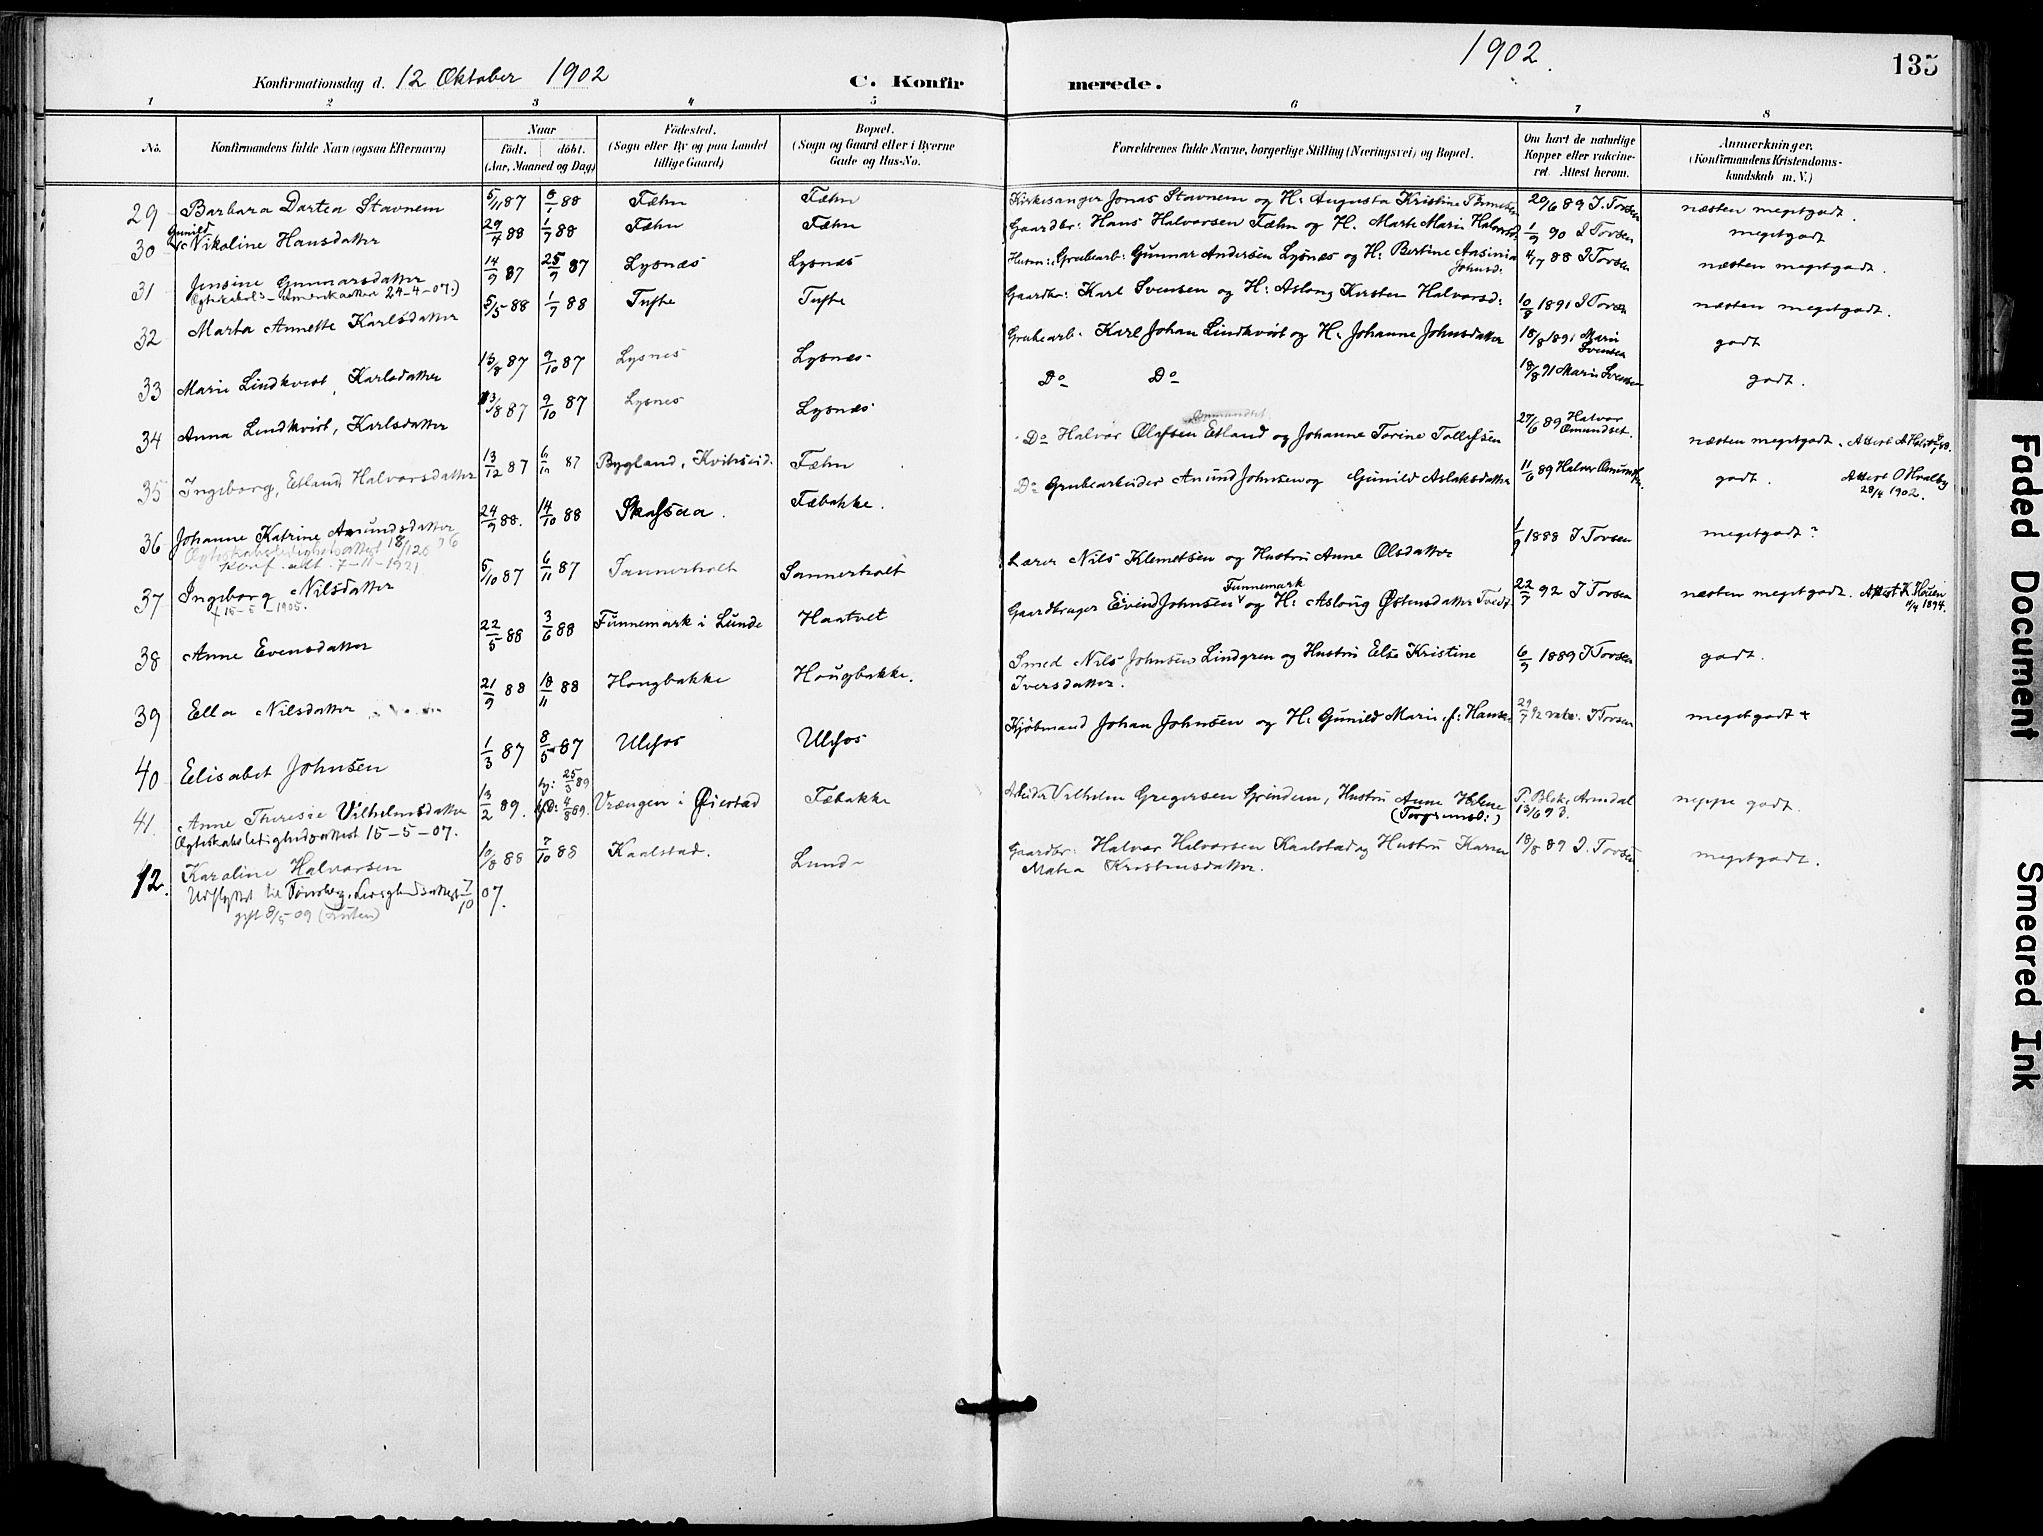 Konfirmationsdag d. 12 Oktober 1902
C. Konfirmerede.
1902.
135
1 2 3 4 5 6 7 8
No.
Konfirmandens fulde Navn (ogsaa Efternavn)
Naar
födt. döbt.
(Aar, Maaned og Dag)
Födested.
(Sogn eller By og paa Landet tillige Gaard)
Bopæl.
(Sogn og Gaard eller i Byerne Gade og Hus-No.
Forældrenes fulde Navne, borgerlige Stilling (Næringsvei) og Bopæl.
Om havt de naturlige Kopper eller vakcineret. Attest herom.
Anmærkninger.
(Konfirmandens Kristendomskundskab m. V.)
29 Barbara Dartea Stavnem 5/11 87 8/1 88 Fæhn Fæhn Kirkesanger Jonas Stavnem og H: Augusta Kristine 20/6 89 I. Torsen næsten megetgodt.
30 Gunild Nikoline Hansdatter 29/4 88 1/7 88 Fæhn Fæhn Gaardbr: Hans Halvorsen Fæhn og H. Marte Marie Halvorsd: 1/9 90 I Torsen megetgodt
31 Jensine Gunnarsdatter 14/9 87 25/9 87 Lysnæs Lysnæs Husm: Grubearb: Gunnar Andersen Lysnæs og H: Bertine Aasinia Johnsd: 4/7 88 I Torsen næsten megetgodt.
Amerikaatten 24-4-07.)
32 Marta Annette Karlsdatter 5/5 88 1/7 88 Tufte Tufte Gaardbr: Karl Svensen og H: Aslong Kirsten Halvorsd: 10/9 1891 I Torsen næsten megetgodt.
33 Marie Lindkvist, Karlsdatter 13/8 87 9/10 87 Lysnes Lysnæs Grubearb: Karl Johan Lindkvist og H. Johanne Johnsdatter 18/8 1891 Marii Svensen godt
34 Anna Lindkvist, Karlsdatter 13/8 87 9/10 87 Lysnes Lysnæs Do Do 18/8 91 Marii Svensen godt.
35 Ingeborg, Etland Halvorsdatter 13/12 87 6/11 87 Bygland, Kvitseid. Fæhn Do Halvor Olefsen Etland og Johanne Torine Tollefsen 27/6 89 Halvor Omundset. næsten megetgodt. Attest
36 Johanne Katrine Amundsdatter 24/9 88. 14/10 88 Skafsaa. Fæbakke. Do Grubearbeider Amund Johnsen og Gunild Aslaksdatter 11/6 89 Halvor godt. Attest O Hvalby 28/4 1902.
Konf. att. 7-11-1921
37 Ingeborg Nilsdatter 5/10 87 6/11 87 Sannerholt Sannerholt Lærer Nils Klemetsen og Hustru Anne Olsdatter 1/9 1888 I Torsen megetgodt?
+ 15-5-1905.
38 Anne Evensdatter 22/5 88 3/6 88 Funnemark i Lunde Haatvet Gaardbruger Eivind Johnsen Funnemark og H: Aslong Østensdatter Tvedt 22/7 92 I Torsen næsten megetgodt. Attest K. Høuen 11/4 1894.
39 Ella Nilsdatter 21/9 88 18/11 88 Hougbakke Hougbakke. Smed Nils Johnsen Lindgren og Hustru Else Kristine Iversdatter. 6/9 1889 I Torsen godt.
40 Elisabet Johnsen 1/3 87 8/5 87 Ulefos Ulefos Kjøbmand Johan Johnsen og H: Gunild Marie, f: Hansen 29/7 92 vakc: I Torsen megetgodt +
41. Anne Theresie Vilhelmsdatter 13/2 89. hj: 25/3 89 i K.: 4/8 89. Vrængen i Øiestad Fæbakke Arbeider Vilhelm Gregersen Grindem, Hustru Anne Helene (Torgrimsd:) P. Blok, Arendal 13/6 93. neppe godt.
Ægteskabsledighedsattest 15-5-07.
12. Karoline Halvorsen 10/8 88 7/10 88 Kaalstad. Lunde Gaardbr: Halvor Halvorsen Kaalstad og Hustru Karen Matea Kristensdatter. 18/8 89 I. Torsen megetgodt.
Udflyttet til Tønsberg. Ledighedsattest 7/10 07.
gift 8/5 09
Faded Document
Smeared Ink